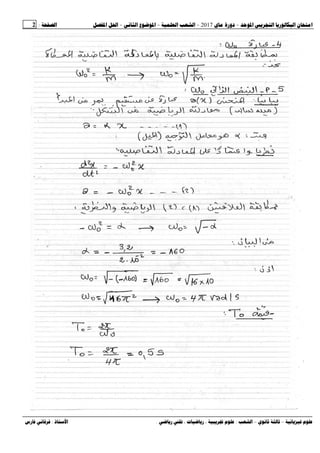 امتحان البكالوريا التجريبي الموحد - دورة ماي 2017 - الشعب العلمية - الموضوع الثاني - الحل المفصل الصفحة - 2
4 - عبارة ω₀ :
بمطابقة المعادلة التفاضلية بالمعادلة التفاضلية المعطاة
نجد :
ω₀² = K/m → ω₀ = √(K/m)
5 - P - النبض الذاتي ω₀ :
بيانيا : المنحنى a(x) عبارة عن مستقيم يمر من المبدأ
(ميله سالب) معادلته الرياضية من الشكل :
a = α x - - - - - (1)
حيث : α هو معامل التوجيه (الميل) :
نظريا واعتمادا على المعادلة التفاضلية :
d²x/dt² = - ω₀² x
a = - ω₀² x - - - (2)
بمطابقة العلاقتين (1) ، (2) الرياضية والنظرية :
- ω₀² = α → ω₀ = √-α
من البيان :
α = - 3,2 / 2.10⁻² = - 160
اذن :
ω₀ = √-(-160) = √160 = √16 x 10
ω₀ = √16π² → ω₀ = 4π rad/s
- قيمة T₀ :
T₀ = 2π/ω₀
T₀ = 2π/4π = 0,5 s
علوم فيزيائية - ثالثة ثانوي - الشعب : علوم تجريبية ، رياضيات ، تقني رياضي الأستاذ : فرقاني فارس